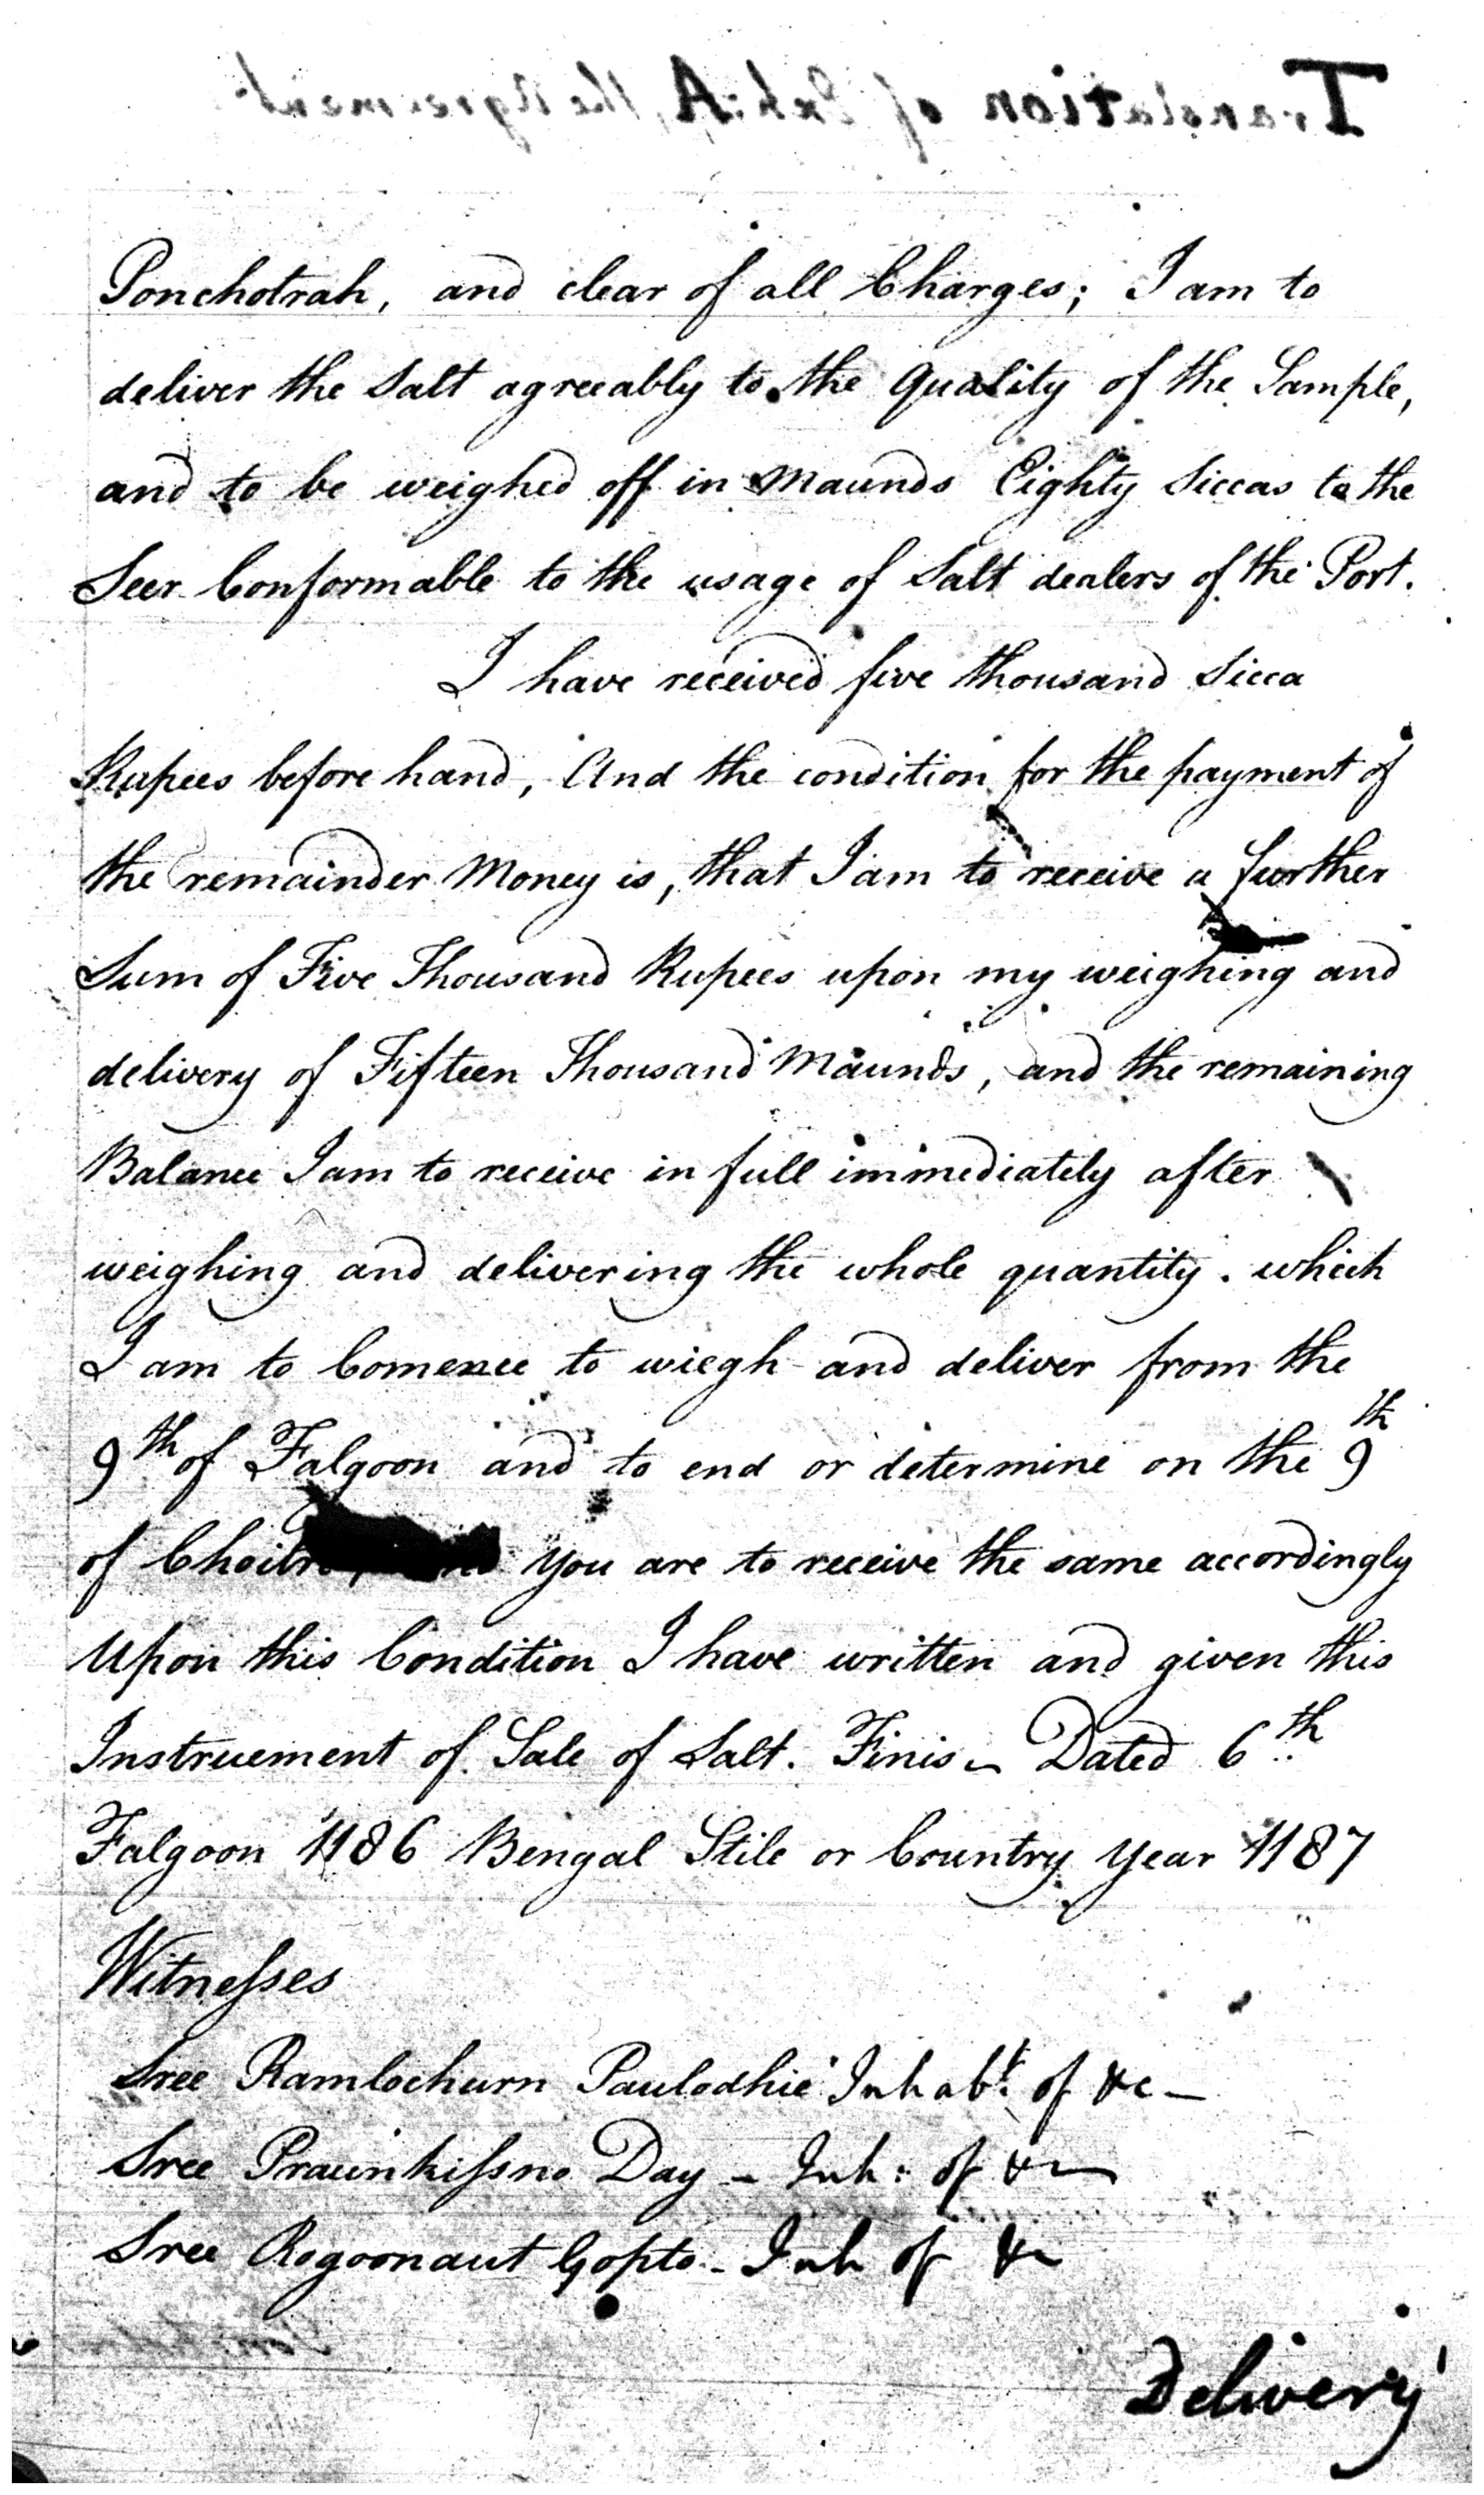 Translation of Exh: A, the Agreement
Ponchotrah, and clear of all Charges; I am to
deliver the Salt agreeably to the Quality of the Sample,
and to be weighed off in Maunds Eighty Siccas to the
Seer Conformable to the usage of Salt dealers of the Port.
I have received five thousand Sicca
Rupees before hand, And the condition for the payment of
the remainder Money is, that I am to receive a further
Sum of Five Thousand Rupees upon my weighing and
delivery of Fifteen Thousand Maunds, and the remaining
Balance I am to receive in full immediately after
weighing and delivering the whole quantity. which
I am to Comence to wiegh and deliver from the
9th of Falgoon and to end or determine on the 9th
of Choitro, and You are to receive the same accordingly
Upon this Condition I have written and given this
Instruement of Sale of Salt. Finis - Dated 6th
Falgoon 1186 Bengal Stile or Country Year 1187
Witnesses
Sree Ramlochurn Paulodhie Inhabt. of &c -
Sree Praunkissno Day - Inh: of &c
Sree Rogoonaut Gopto - Inh of &c
Delivery